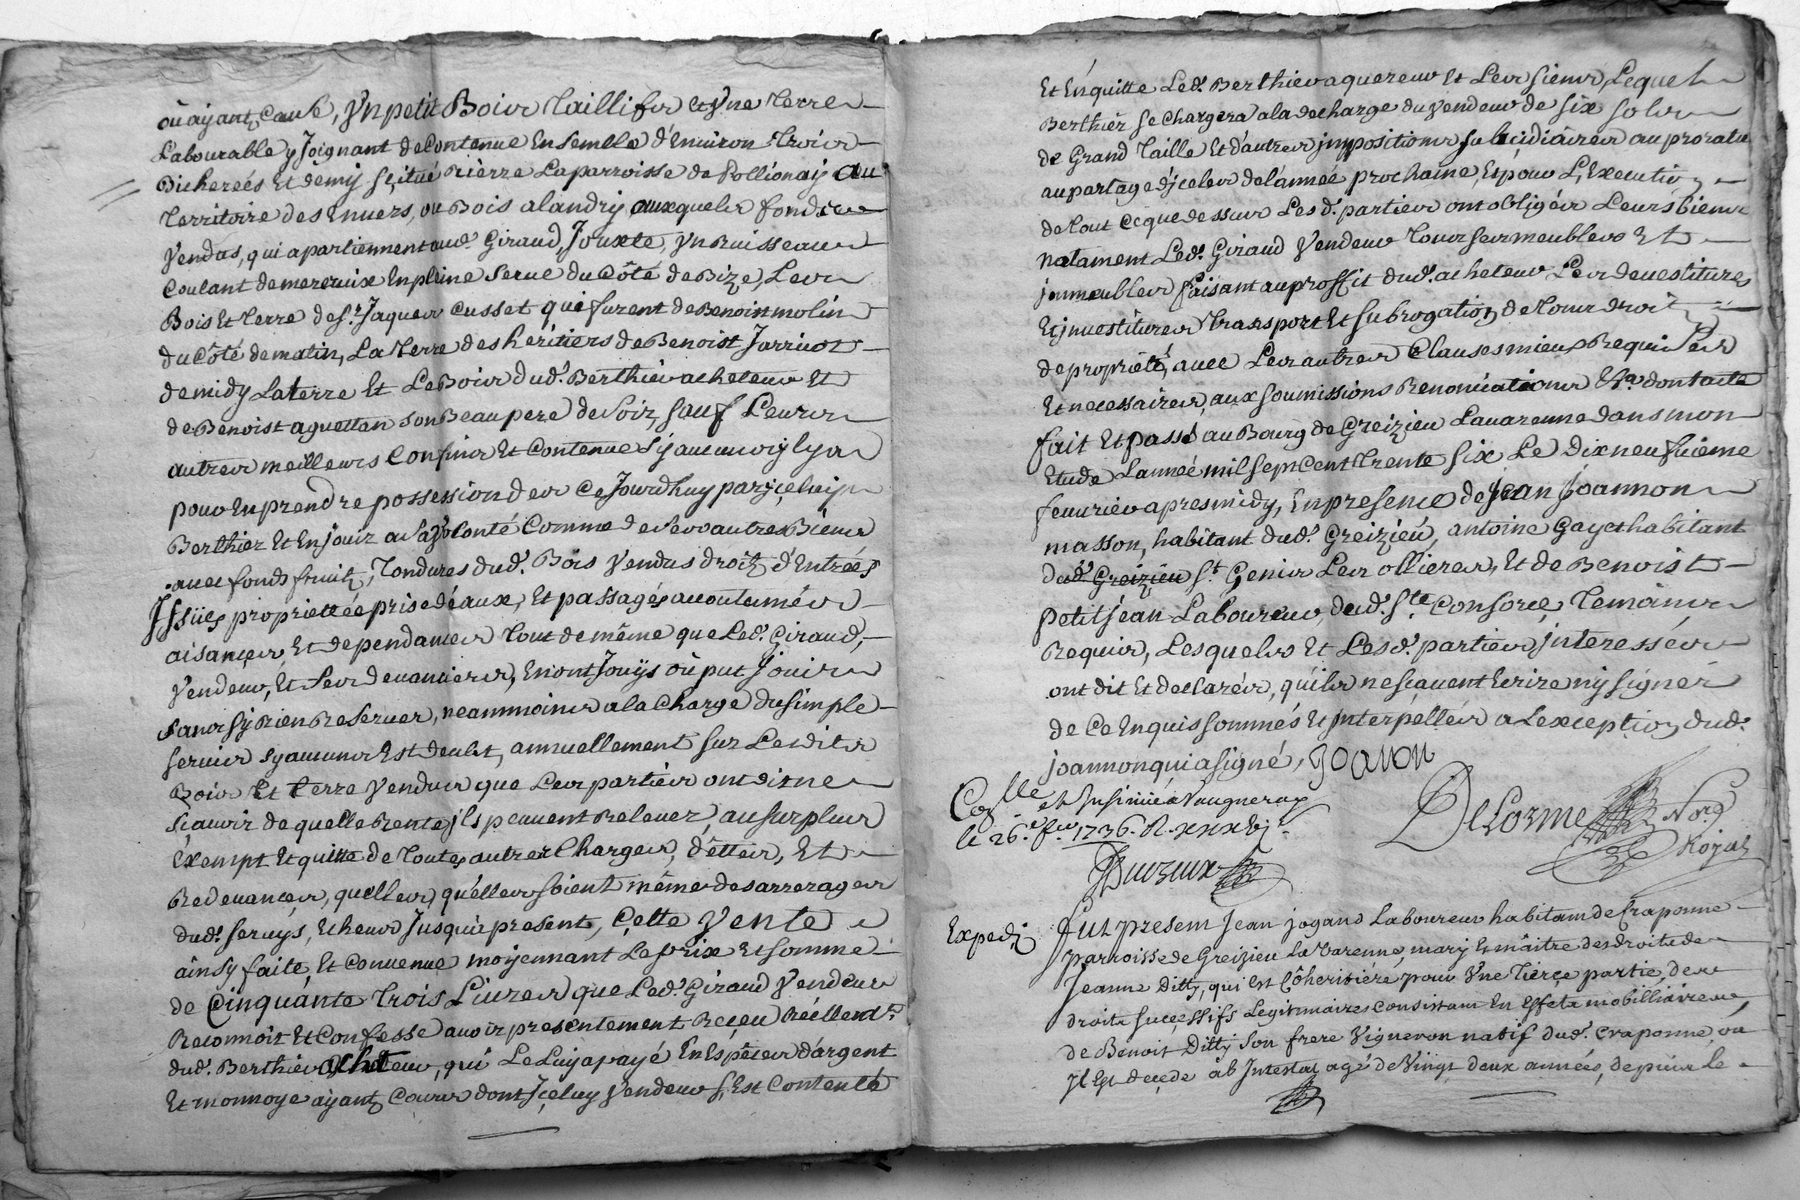 où ayant Cause, Un petit Bois Taillifs et Une Terre
Labourable y Joignant de Contenue Ensemble d'Environ Trois
Bicherées Et demij scitué Rierre La parroisse de Pollionaij au
Territoire des Envers, ou Bois alandrij auxquels fonds
Vendus, qui apartiennent aud. Giraud, Jouxte, Un Ruisseau
Coulant de mereruix En pleine serve du Côté de Bize, Les
Bois Et Terre de sr. Jaques Cusset qui furent de Benoit molin
du Côté de matin, La Terre des héritiers de Benoist Jarricot
de midy La terre Et Le Bois dud. Berthier acheteur Et
de Benoist aguettan son Beaupere de Soir, sauf Leurs
autres meilleurs Confins Et Contenue sy aucuns ij lya
pour En prendre possession des Ce Jourdhuy par iceluy
Berthier Et En jouir a sa Volonté Comme de ses autres Biens
avec fonds fruits, Tondures dud. Bois Vendus droits d'Entrées
Issües proprietté prise d'éaux, Et passages accoutumés
aisances, Et dependances Tout de même que Led. Giraud,
Vendeur, Et ses devanciers, En ont Jouijs où put Jouir
sans sy Rien Reserver, neammoins a la Charge du simple
servis sy aucuns Est deubt, annuellement sur Lesdits
Bois Et terre Vendus que Les parties ont dit ne
sçavoir de quelle Rente ils peuvent Relever, au surplus
Exempt Et quitte de Toutes autres Charges, dettes, Et
Redevances, quelles qu'elles soient même des arrerages
dud. servijs, Echeus Jusqu'a present, Cette Vente
ainsy faite, Et Convenue moyennant Le prix Et somme
de Cinquante Trois Livres que Led. Giraud Vendeur
Reconnoit Et Confesse avoir presentement Reçeu Réellemt.
dud. Berthier acheteur, qui Le Luy a payé En Especes d'argent
Et monnoye ayant Cours dont Iceluy Vendeur s'Est Contenté
Et En quitte Led. Berthier aquereur Et Les siens, Lequel
Berthier se Chargera a la decharge du Vendeur de six sols
de Grand Taille Et d'autres impositions subcidiaires au prorata
au partage d'iceles de l'année prochaine, Et pour L'Execution
de Tout Ce que dessus Lesd. parties ont obligés Leurs biens
notament Led. Giraud Vendeur Tous ses meubles Et
immeubles faisant au proffit dud. acheteur Les devestitures
Et investitures Transport Et subrogation de Tous droit
de proprieté, avec Les autres Clauses mieux Requises
Et necessaires, aux soumissions Renonciations &a. dont acte
fait Et passé au Bourg de Greizieu Lavarenne dans mon
Etude L'année mil sept Cent Trente six Le dix neufvieme
fevrier apres midy, En presence de Jean Joannon
masson, habitant dud. Greizieu, antoine Gayet habitant
dud. Greizieu St. Genis Les ollieres, Et de Benoist
petit jean Laboureur, dud. Ste. Consorce, Temoins
Requis, Lesquels Et Lesd. parties, interessées
ont dit Et declarés, qu'ils ne sçavent Ecrire nij signer
de Ce Enquis sommés Et interpellés a Lexception dud.
joannon qui a signé, joanon
Collé et Insinué a Vaugneray
le 26e. fer. 1736. R. xxx
DeLorme Nore
Royal
Expedi
Fut present Jean jogand Laboureur habitant de Craponne
parroisse de Greizieu La Varenne, marij Et maitre des droits de
Jeanne Ditty, qui Est Côheritiére pour Une Tierçe partie, des
droits suçessifs Legitimaires Consistant En Effets mobilliaires
de Benoit Ditty son frere Vigneron natif dud. Craponne, ou
il Est deçede ab Intestat agé de Vingt deux années, depuis Le